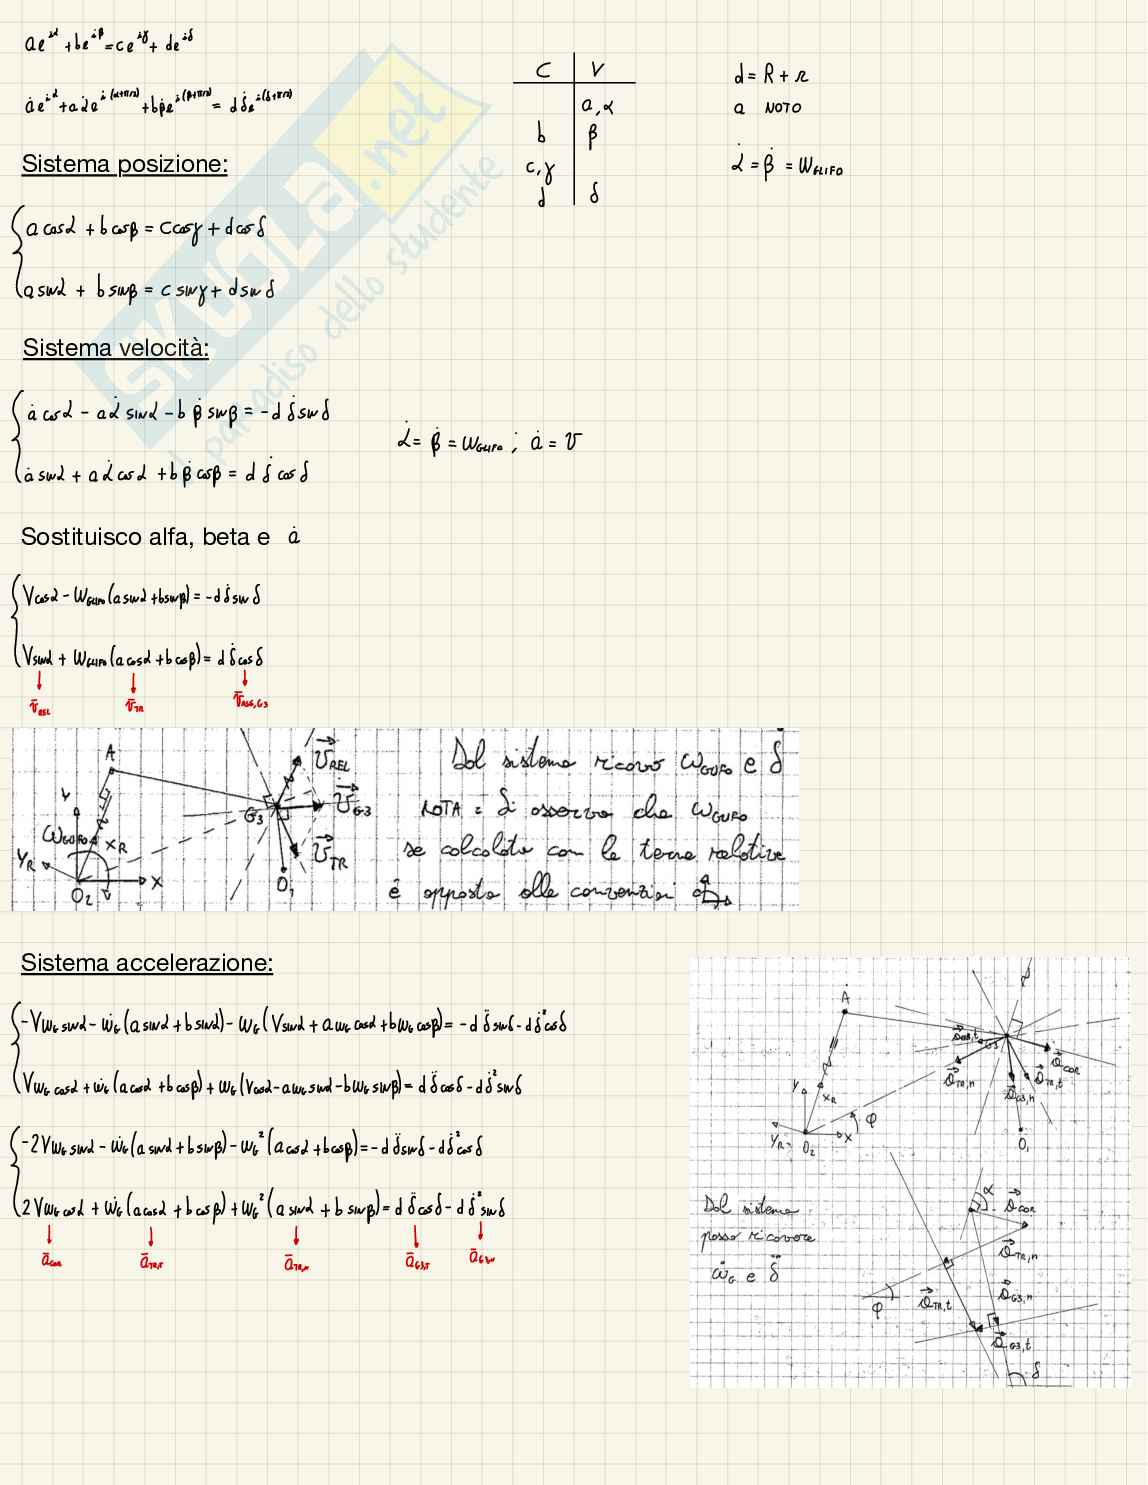 ae^{iα} + be^{iβ} = ce^{iγ} + de^{iδ}
ȧe^{iα} + aα̇e^{i(α+π/2)} + bβ̇e^{i(β+π/2)} = dδ̇e^{i(δ+π/2)}
C | V
a, α
b | β
c, γ
d | δ
d = R + r
a NOTO
α̇ = β̇ = ω_GLIFO
Sistema posizione:
a cosα + b cosβ = c cosγ + d cosδ
a sinα + b sinβ = c sinγ + d sinδ
Sistema velocità:
ȧ cosα - aα̇ sinα - bβ̇ sinβ = -dδ̇ sinδ
ȧ sinα + aα̇ cosα + bβ̇ cosβ = dδ̇ cosδ
α̇ = β̇ = ω_GLIFO ; ȧ = v
Sostituisco alfa, beta e ȧ
V cosα - ω_GLIFO (a sinα + b sinβ) = -dδ̇ sinδ
V sinα + ω_GLIFO (a cosα + b cosβ) = dδ̇ cosδ
v̄_REL v̄_TR v̄_ASS,G3
A
Y
ω_GLIFO
X_R
Y_R
O₂
X
G₃
O₁
v_REL
v_G3
v_TR
Dal sistema ricavo ω_GLIFO e δ̇
NOTA: Si osserva che ω_GLIFO
se calcolata con le terne relative
è opposta alle convenzioni
Sistema accelerazione:
-Vω_G sinα - ω̇_G (a sinα + b sinα) - ω_G (V sinα + aω_G cosα + bω_G cosβ) = -dδ̈ sinδ - dδ̇² cosδ
Vω_G cosα + ω̇_G (a cosα + b cosβ) + ω_G (V cosα - aω_G sinα - bω_G sinβ) = dδ̈ cosδ - dδ̇² sinδ
-2Vω_G sinα - ω̇_G (a sinα + b sinβ) - ω_G² (a cosα + b cosβ) = -dδ̈ sinδ - dδ̇² cosδ
2Vω_G cosα + ω̇_G (a cosα + b cosβ) + ω_G² (a sinα + b sinβ) = dδ̈ cosδ - dδ̇² sinδ
ā_COR ā_TR,t ā_TR,n ā_G3,t ā_G3,n
A
a_G3,t
G₃
a_COR
a_TR,n
a_TR,t
a_G3,n
Y
X_R
φ
Y_R
O₂
X
O₁
Dal sistema
posso ricavare
ω̇_G e δ̈
α
a_COR
a_TR,n
a_G3,n
a_TR,t
φ
a_G3,t
δ
SKUOLA.net
il paradiso dello studente